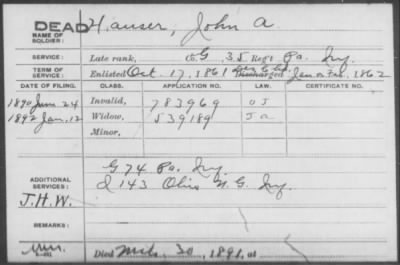 DEAD
NAME OF SOLDIER: Hauser, John A
SERVICE: Late rank, Co. G 35 Reg't Pa. Inf.
TERM OF SERVICE: Enlisted Oct. 17, 1861 Discharged Jan or Feb. 1862
DATE OF FILING. CLASS. APPLICATION NO. LAW. CERTIFICATE NO.
1890 June 24 Invalid, 783969
1892 Jan. 12 Widow, 539189
Minor,
ADDITIONAL SERVICES: G 74 Pa. Inf.
I 143 Ohio N. G. Inf.
J.H.W.
REMARKS:
Died Mch. 30, 1891, at